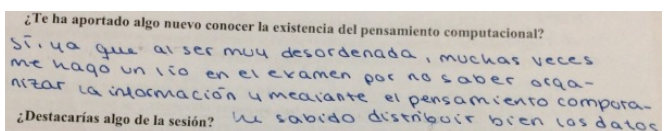 ¿Te ha aportado algo nuevo conocer la existencia del pensamiento computacional?
Sí, ya que al ser muy desordenada, muchas veces
me hago un lío en el examen por no saber orga-
nizar la información y mediante el pensamiento computa-
¿Destacarías algo de la sesión? he sabido distribuir bien los datos